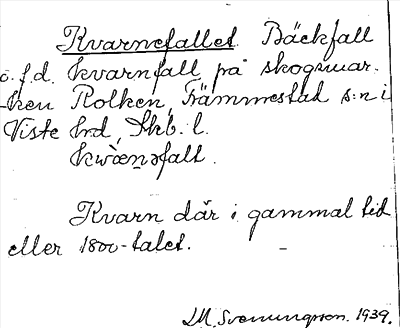 Kvarnefallet. Bäckfall
o.f.d. kvarnfall på skogsmar-
ken Rolken, Främmestad s:n i
Viste hrd, Skb. l.
kwæ̀ṇəfalt.
Kvarn där i gammal tid
eller 1800-talet.
M. Svenungson. 1939.